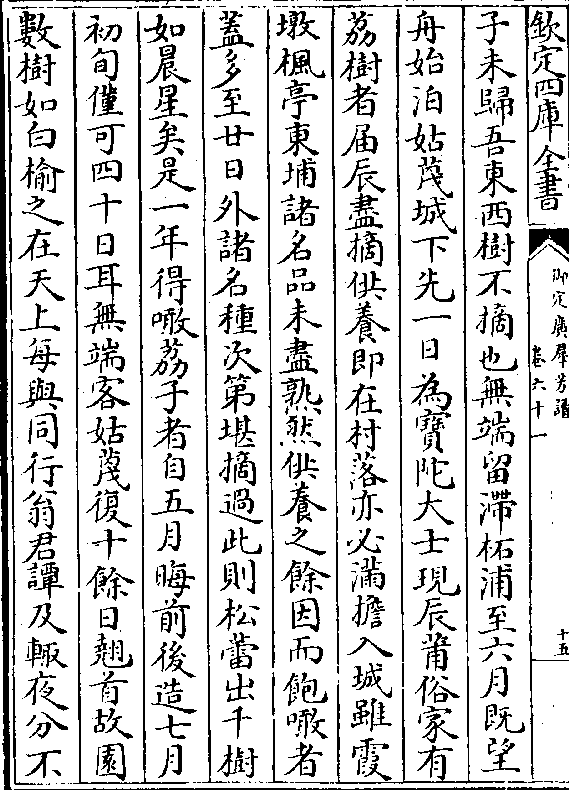 欽定四庫全書
御定廣羣芳譜
卷六十一
十五
子未歸吾東西樹不摘也無端留滯柘浦至六月既望
舟始泊姑蔑城下先一日為寶陀大士現辰莆俗家有
荔樹者届辰盡摘供養即在村落亦必滿擔入城雖霞
墩楓亭東埔諸名品未盡熟然供養之餘因而飽噉者
蓋多至廿日外諸名種次第堪摘過此則松蕾出千樹
如晨星矣是一年得噉荔子者自五月晦前後造七月
初旬僅可四十日耳無端客姑蔑復十餘日翹首故園
數樹如白榆之在天上每與同行翁君譚及輙夜分不